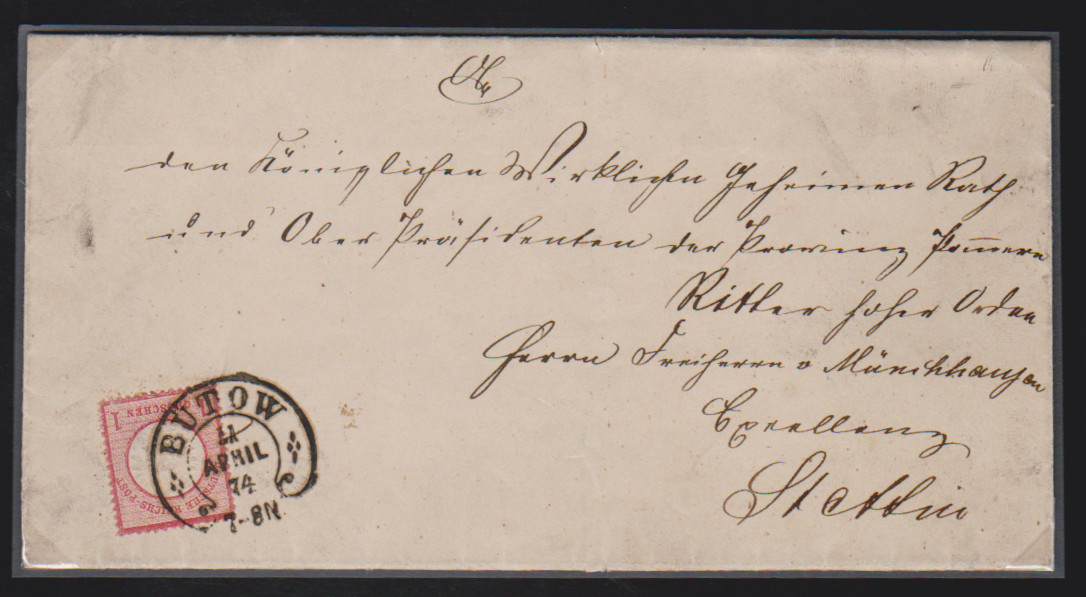 An
den Königlichen Wirklichen Geheimen Rath
und Ober Präsidenten der Provinz Pom̅ern
Ritter hoher Orden
Herrn Freiherrn v Münchhausen
Excellenz
Stettin
BUTOW
APRIL
74
7-8N
1 GROSCHEN 1
DEUTSCHE REICHS-POST